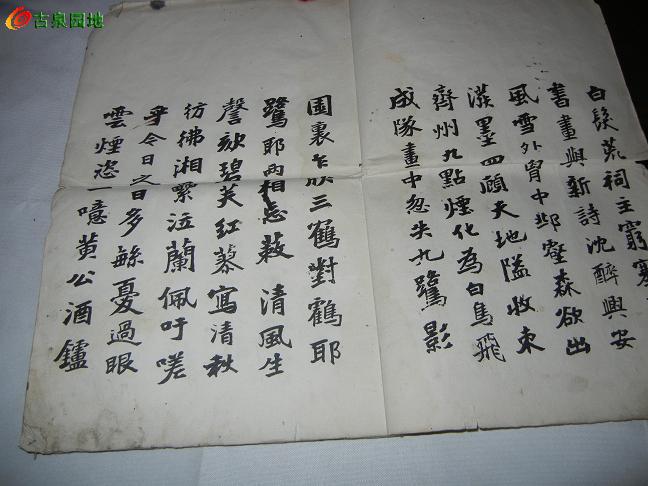 古泉园地
白髮荒祠主窮
書畫與新詩沈醉興安
風雪外胷中邱壑森欲出
潑墨四顧天地隘收束
齊州九點煙化為白鳥飛
成隊畫中忽失九鷺影
圖裏乍 三鶴對鶴耶
鷺耶两相忘 清風生
謦欬碧芙紅蓼寫清秋
彷彿湘纍泣蘭佩吁嗟
乎今日之日多 憂過眼
雲煙恣一噫黃公酒鑪